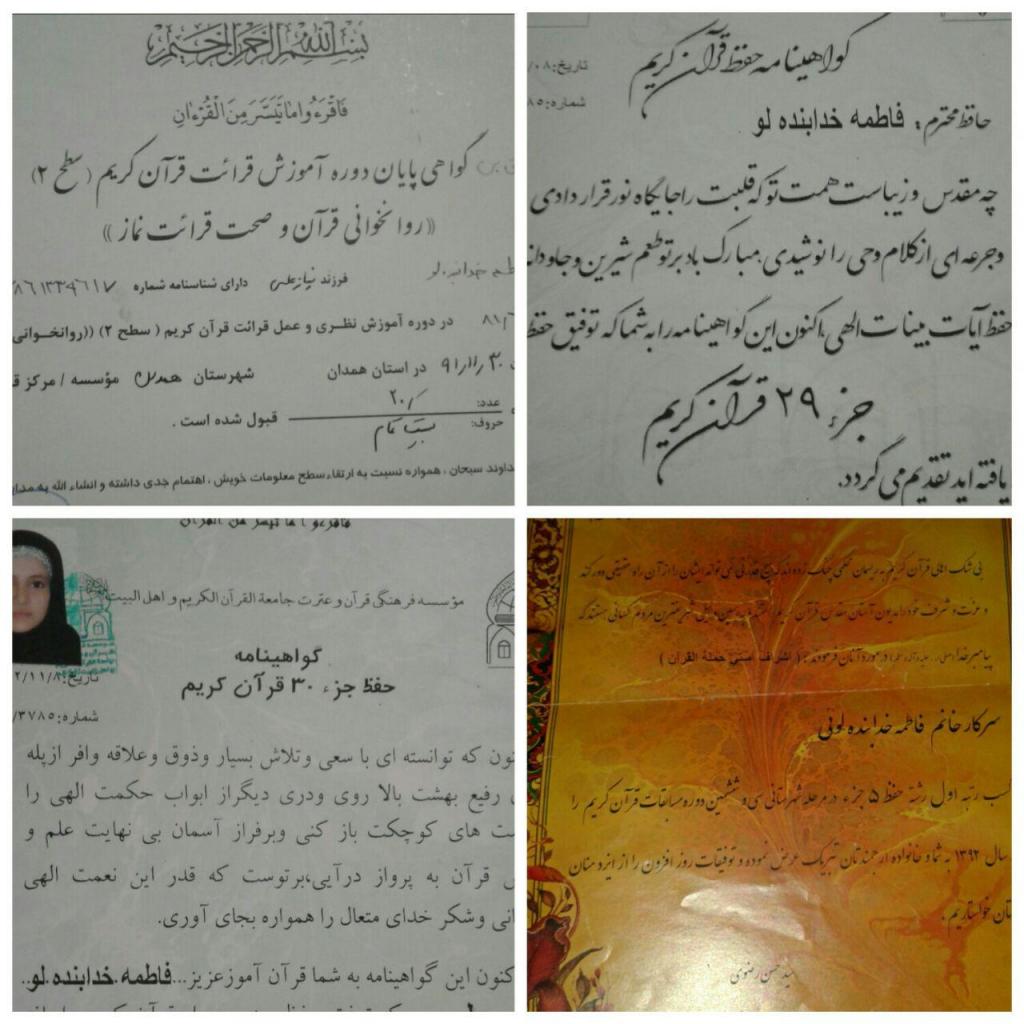 بسم الله الرحمن الرحیم
فَاقْرَءُوا ما تَیَسَّرَ مِنَ الْقُرْءَانِ
گواهی پایان دوره آموزش قرائت قرآن کریم (سطح ۲)
«روانخوانی قرآن و صحت قرائت نماز»
فرزند نیازعلی دارای شناسنامه شماره
در دوره آموزش نظری و عمل قرائت قرآن کریم ( سطح ۲) ((روانخوانی
۹۱/۱۱/۳۰ در استان همدان شهرستان همدان مؤسسه / مرکز
عدد: ۲۰/
حروف: بیست تمام
قبول شده است .
داوند سبحان ، همواره نسبت به ارتقاء سطح معلومات خویش ، اهتمام جدی داشته و انشاء الله به
گواهینامه حفظ قرآن کریم
تاریخ: ۰۸/
شماره: ۸۵
حافظ محترم ، فاطمه خدابنده لو
چه مقدس و زیباست همت تو که قلبت را جایگاه نور قرار دادی
وجرعه ای از کلام وحی را نوشیدی. مبارک باد بر تو طعم شیرین و جاودانه
حفظ آیات بینات الهی، اکنون این گواهینامه را به شما که توفیق حفظ
جزء ۲۹ قرآن کریم
یافته اید تقدیم می گردد.
فاقرءوا ما تیسر من القران
مؤسسه فرهنگی قرآن و عترت جامعة القرآن الکریم و اهل البیت
گواهینامه
حفظ جزء ۳۰ قرآن کریم
تاریخ:
شماره: ۳۷۸۵/
نون که توانسته ای با سعی وتلاش بسیار وذوق وعلاقه وافر ازپله
رفیع بهشت بالا روی ودری دیگراز ابواب حکمت الهی را
ست های کوچکت باز کنی وبرفراز آسمان بی نهایت علم و
قرآن به پرواز درآیی،برتوست که قدر این نعمت الهی
انی وشکر خدای متعال را همواره بجای آوری.
کنون این گواهینامه به شما قرآن آموزعزیز...فاطمه خدابنده لو..
بی شک اهالی قرآن کریم به ریسمان محکمی چنگ زده اند که هیچ قدرتی نمی تواند ایشان را از آن راه حقیقی دور کند
و عزت و شرف خود را مدیون آستان مقدس قرآن
پیامبر خدا در مورد آنان فرمودند: ( اشراف امتی حملة القرآن )
سرکار خانم فاطمه خدابنده لوئی
کسب رتبه اول رشته حفظ ۵ جزء در مرحله شهرستانی سی و ششمین دوره مسابقات قرآن کریم را
سال ۱۳۹۲ به شما و خانواده ارجمندتان تبریک عرض نموده و توفیقات روز افزون را از ایزد منان
تان خواستاریم .
سید حسن رضوی